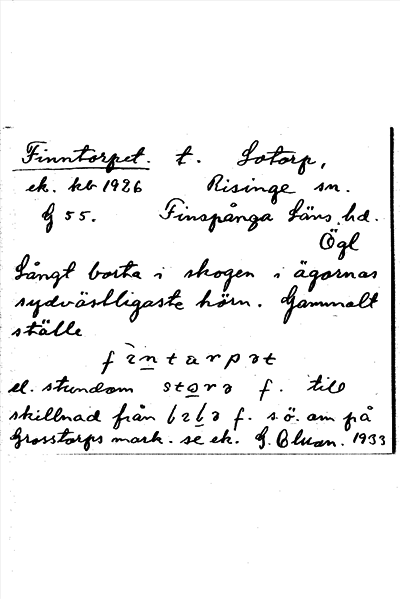 Finntorpet. t. Sotorp,
ek. kb 1926 Risinge sn.
G 55. Finspånga läns hd.
Ögl
Långt borta i skogen i ägornas
sydvästligaste hörn. Gammalt
ställe
fìntarpət
el. stundom stora f. till
skillnad från f. s.ö. om på
Grosstorps mark. se ek. 1933